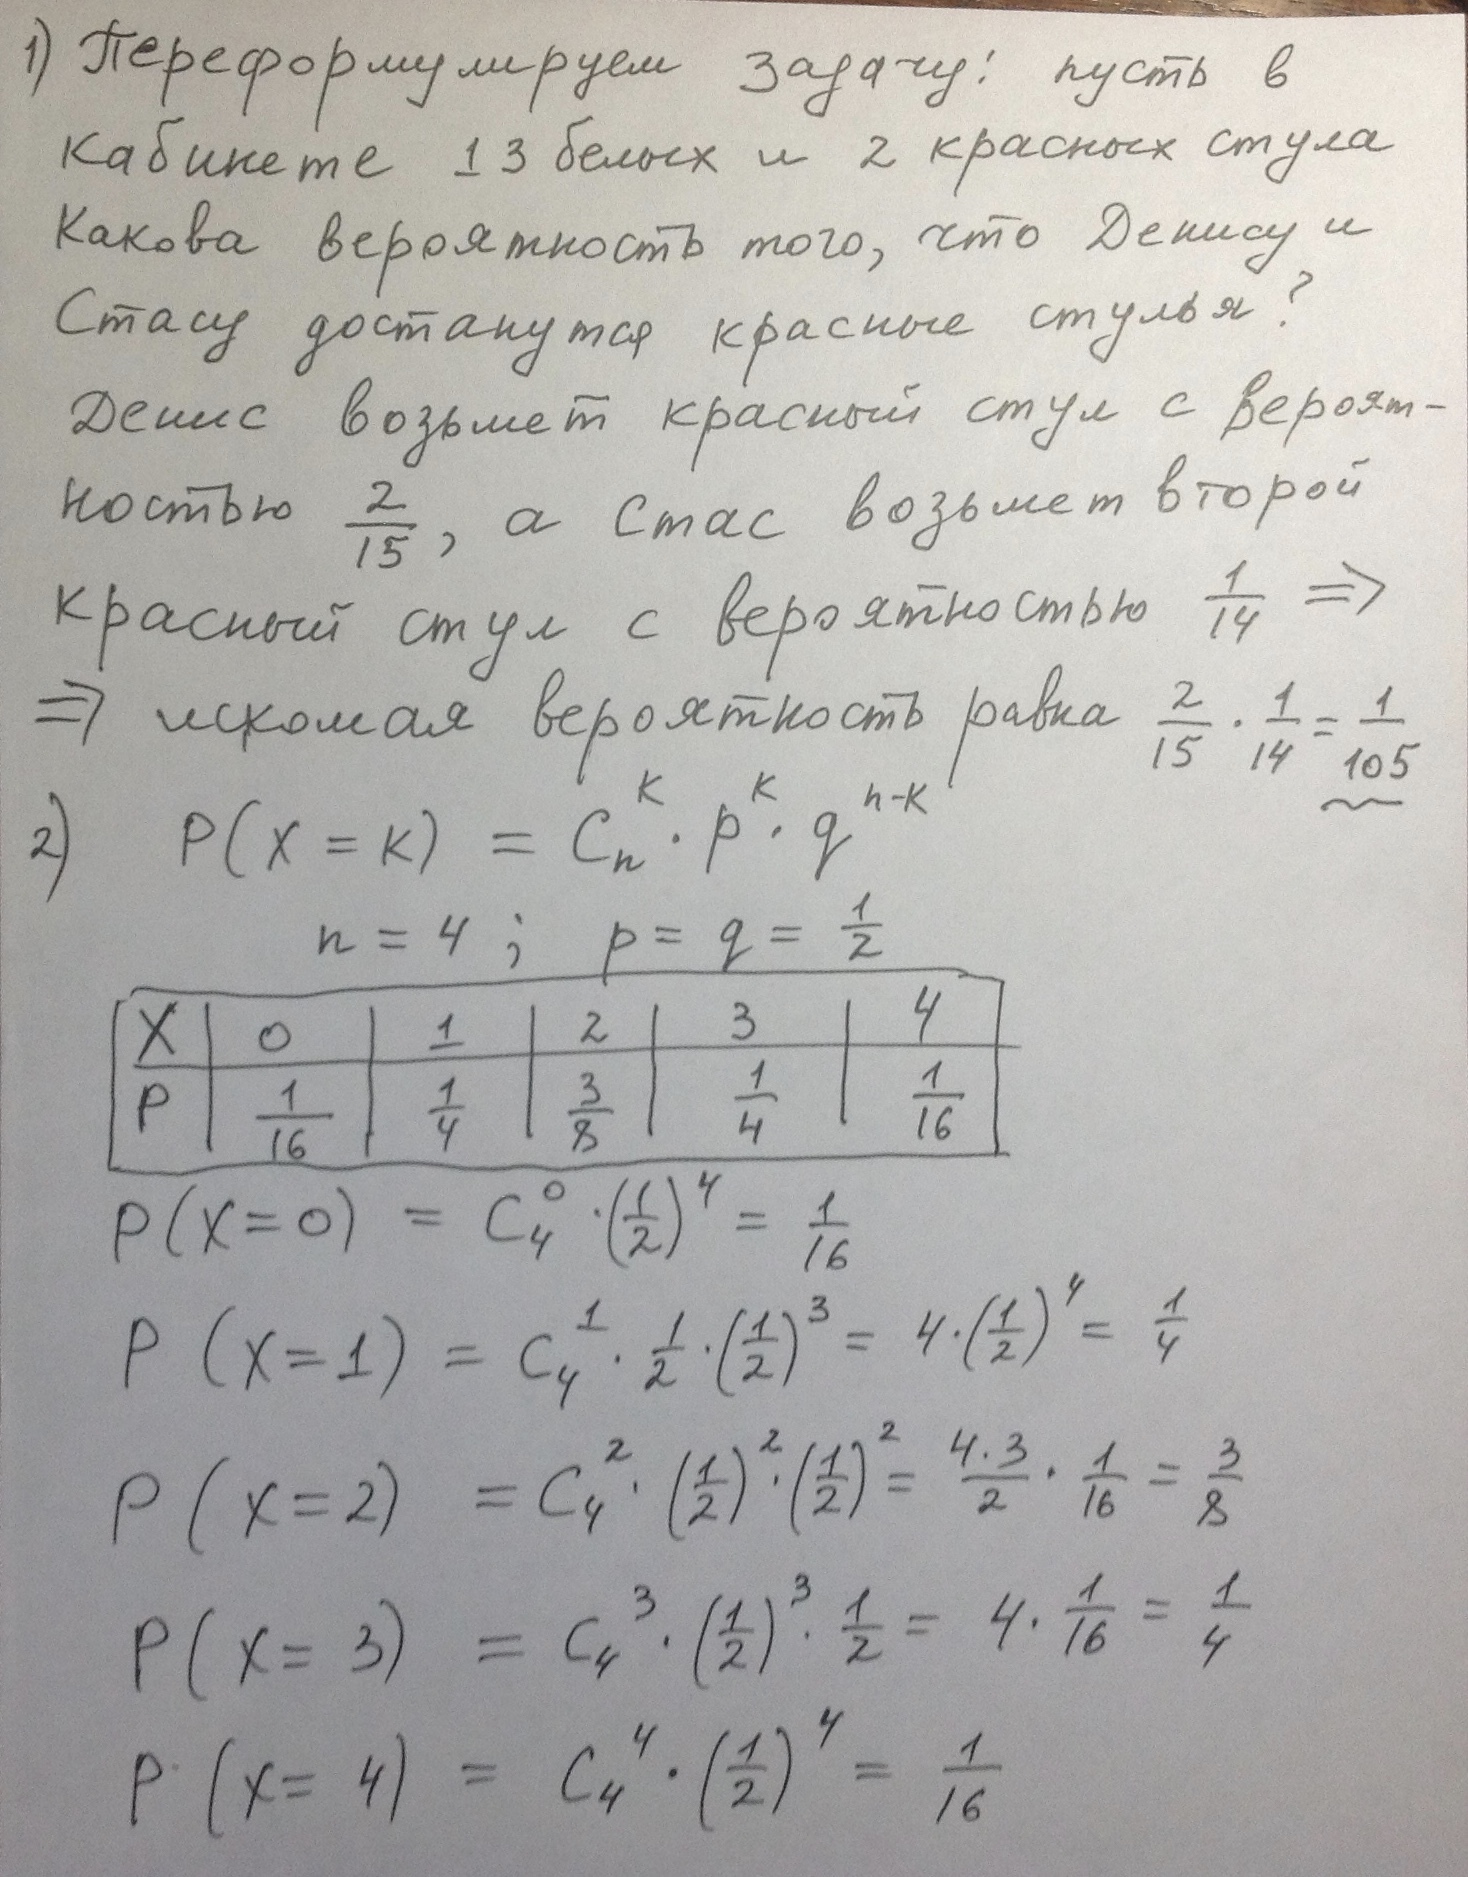 1) Переформулируем задачу: пусть в
кабинете 13 белых и 2 красных стула
Какова вероятность того, что Денису и
Стасу достанутся красные стулья?
Денис возьмет красный стул с вероят-
ностью 2/15, а Стас возьмет второй
красный стул с вероятностью 1/14 =>
=> искомая вероятность равна 2/15 · 1/14 = 1/105
2) P(X = K) = C_n^K · p^K · q^(n-K)
n = 4 ; p = q = 1/2
X | 0 | 1 | 2 | 3 | 4
P | 1/16 | 1/4 | 3/8 | 1/4 | 1/16
P(X=0) = C_4^0 · (1/2)^4 = 1/16
P (X=1) = C_4^1 · 1/2 · (1/2)^3 = 4 · (1/2)^4 = 1/4
P (X=2) = C_4^2 · (1/2)^2 · (1/2)^2 = 4·3/2 · 1/16 = 3/8
P (X= 3) = C_4^3 · (1/2)^3 · 1/2 = 4 · 1/16 = 1/4
P (X= 4) = C_4^4 · (1/2)^4 = 1/16